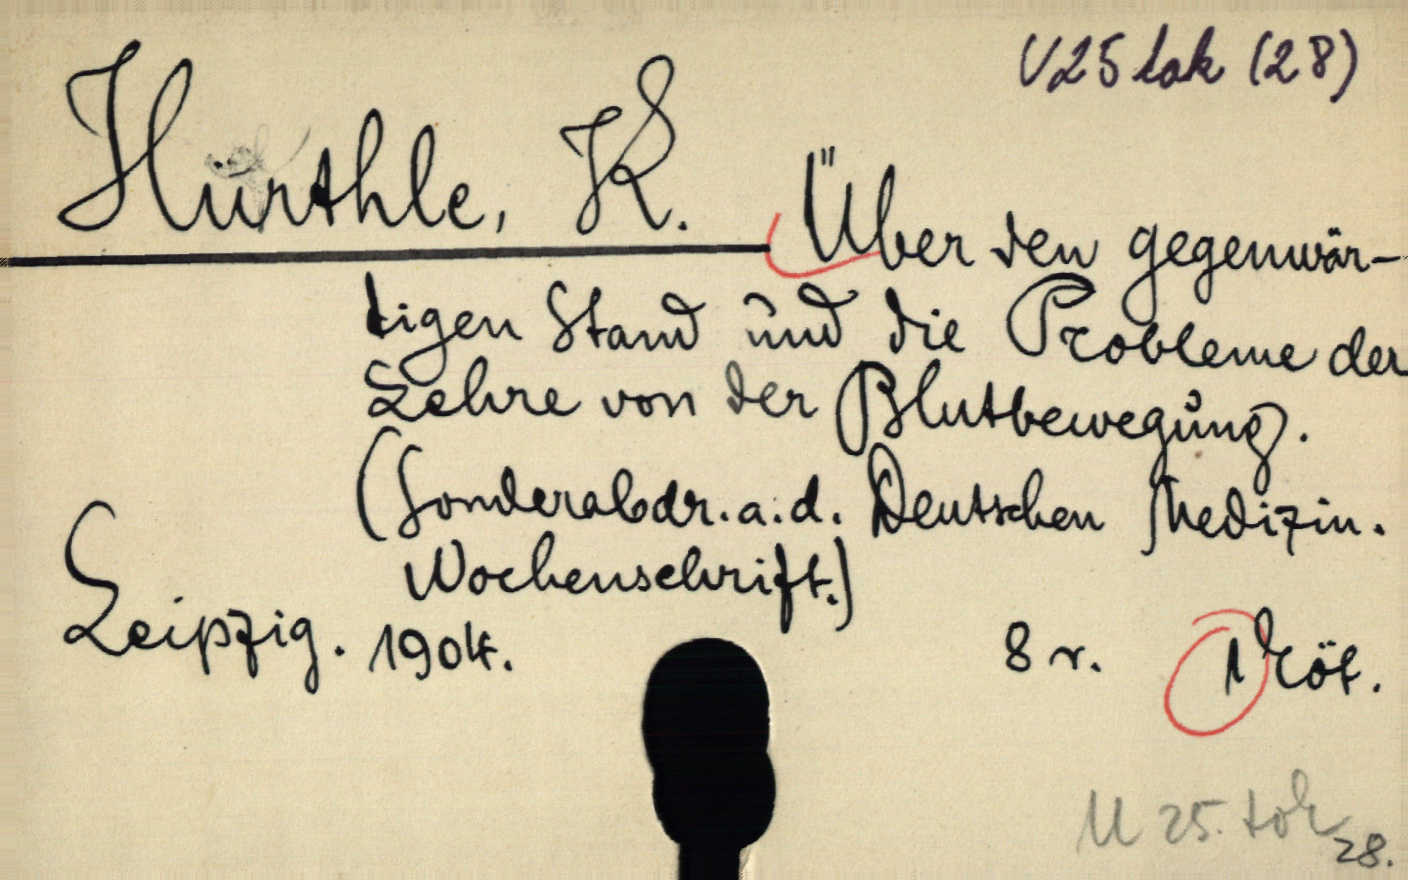 V25 tok (28)
Hürthle, K.
Über den gegenwär-
tigen Stand und die Probleme der
Lehre von der Blutbewegung.
(Sonderabdr. a. d. Deutschen Medizin.
Wochenschrift.)
Leipzig. 1904.
8 r. 1 köt.
25. tok
28.